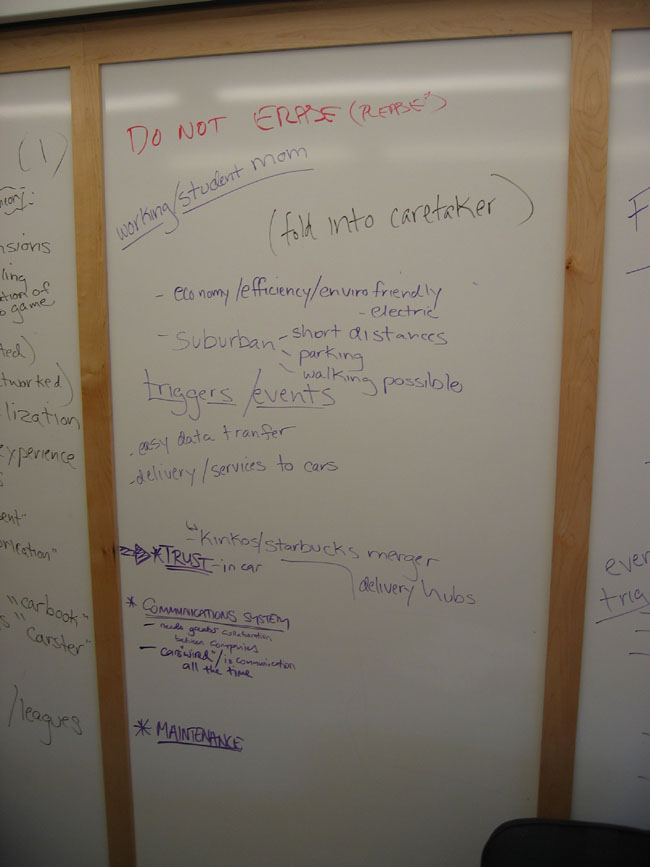 DO NOT ERASE (PLEASE")
working/student mom
(fold into caretaker)
- economy/efficiency/enviro friendly
- electric
- suburban - short distances
- parking
- walking possible
triggers/events
- easy data tranfer
- delivery/services to cars
- Kinkos/starbucks merger
delivery hubs
* TRUST - in car
* COMMMUNICATIONS SYSTEM
- needs greater collaboration
between companies
- cars "wired"/in communication
all the time
* MAINTENANCE
(1)
nsions
ling
ation of
o game
ted)
tworked)
lization
xperience
ent"
orication"
"carbook"
s "Carster"
/leagues
F
ever
trig